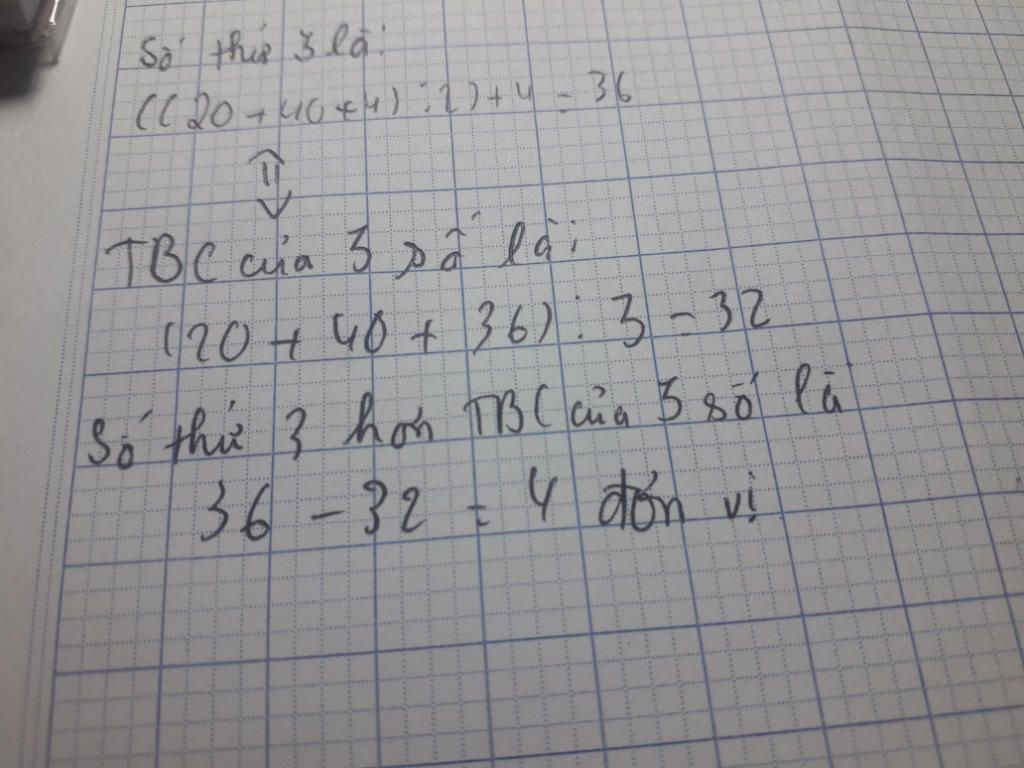 Số thứ 3 là:
((20 + 40 + 4) : 2) + 4 = 36
⇕
TBC của 3 số là:
(20 + 40 + 36) : 3 = 32
Số thứ 3 hơn TBC của 3 số là
36 - 32 = 4 đơn vị